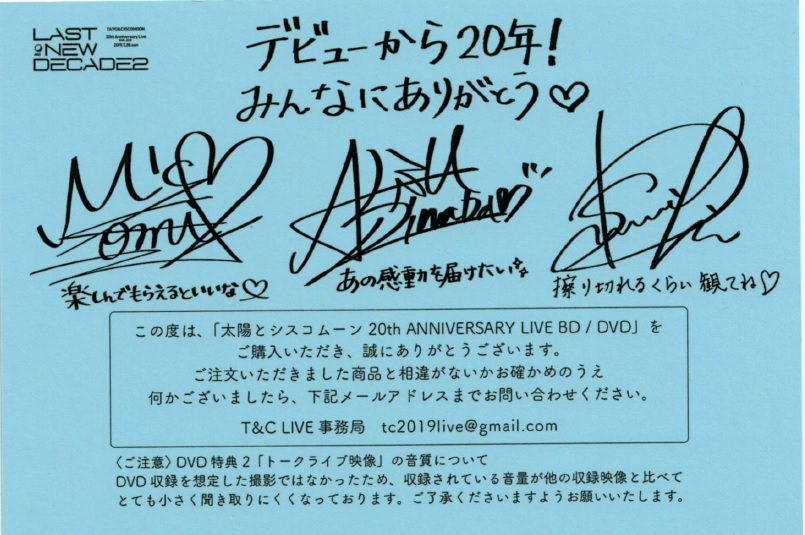 LAST
NEW
DECADE2
TAIYO&CISCOMOON
20th Anniversary Live
デビューから20年!
みんなにありがとう♡
楽しんでもらえるといいな♡
あの感動を届けたい
擦り切れるくらい観てね♡
この度は、「太陽とシスコムーン 20th ANNIVERSARY LIVE BD / DVD」を
ご購入いただき、誠にありがとうございます。
ご注文いただきました商品と相違がないかお確かめのうえ
何かございましたら、下記メールアドレスまでお問い合わせください。
T&C LIVE 事務局 tc2019live@gmail.com
〈ご注意〉DVD 特典 2「トークライブ映像」の音質について
DVD 収録を想定した撮影ではなかったため、収録されている音量が他の収録映像と比べて
とても小さく聞き取りにくくなっております。ご了承くださいますようお願いいたします。